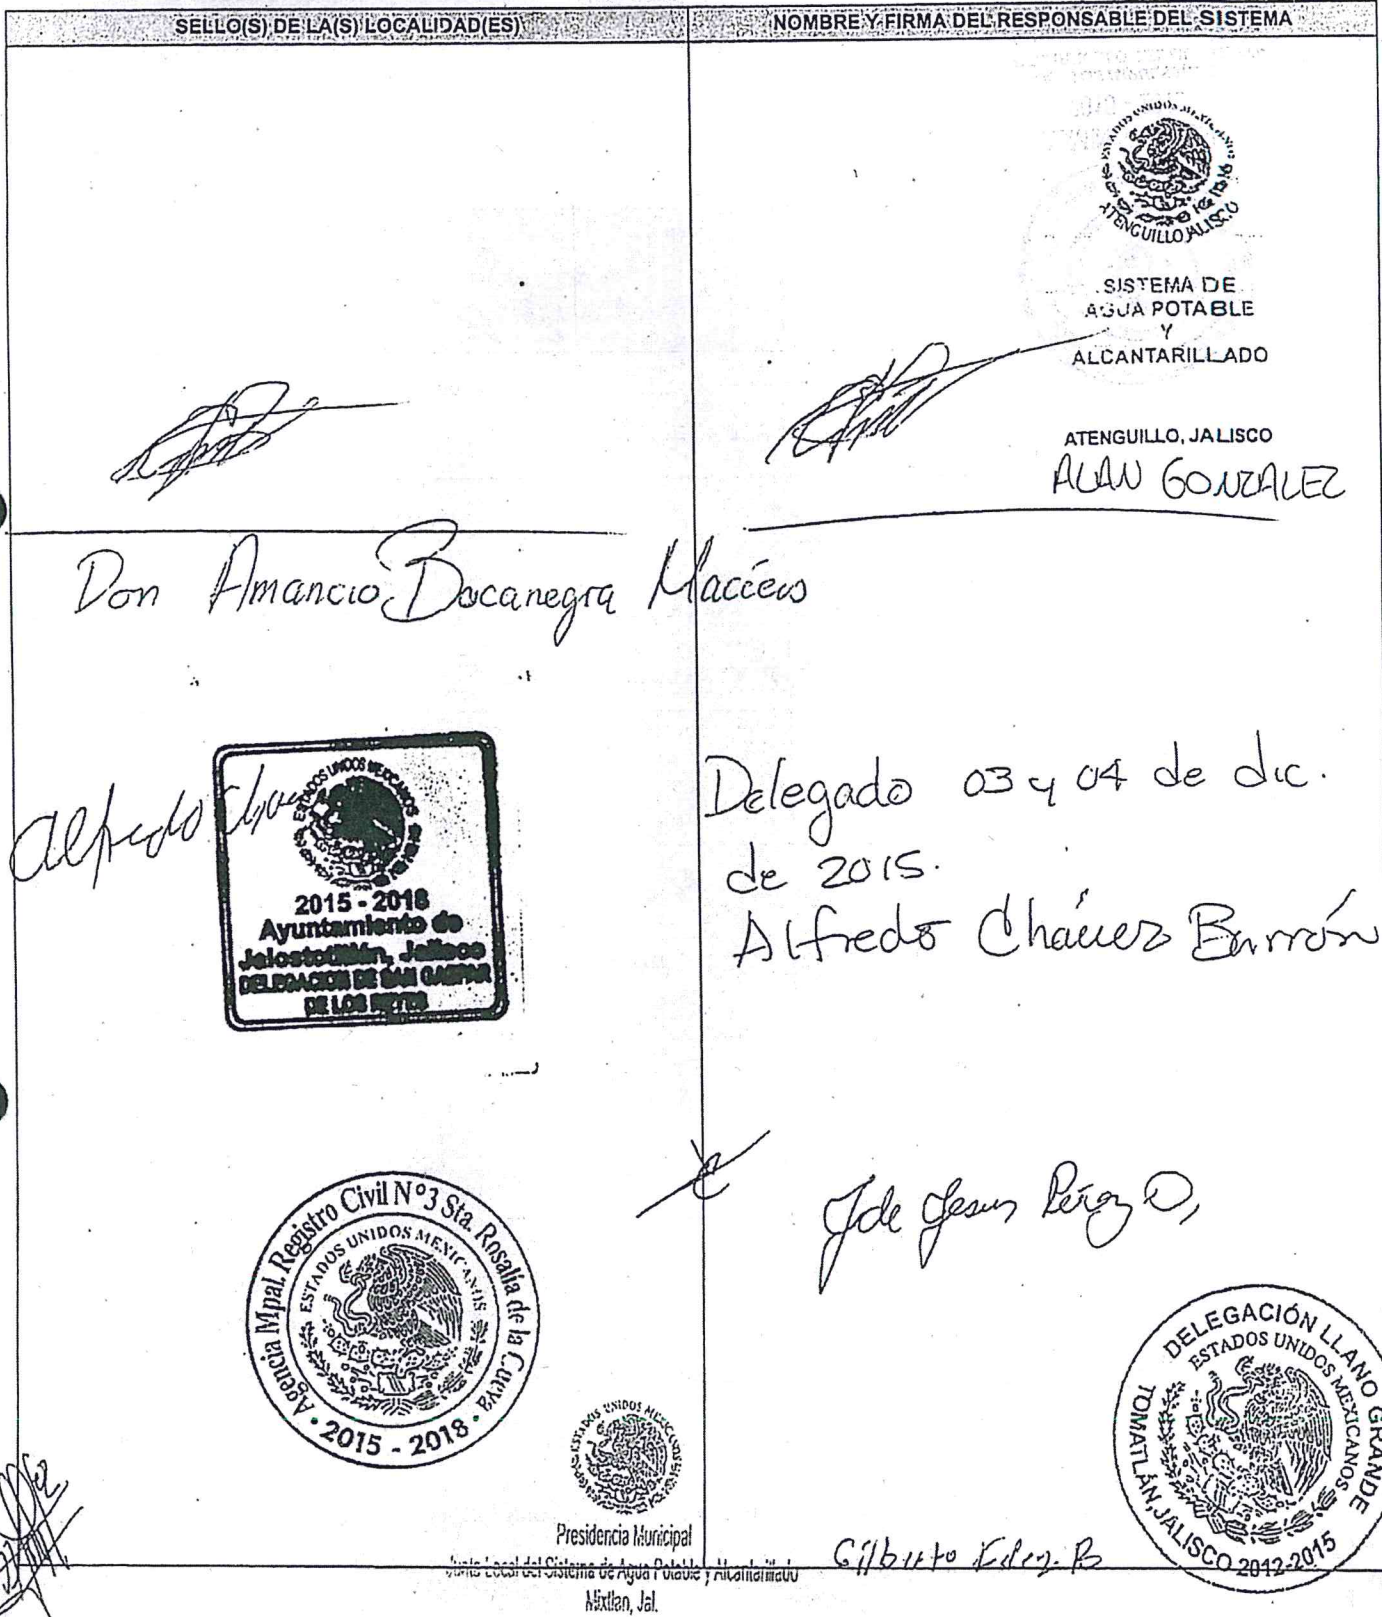 SELLO(S) DE LA(S) LOCALIDAD(ES)
NOMBRE Y FIRMA DEL RESPONSABLE DEL SISTEMA
ESTADOS UNIDOS MEXICANOS
ATENGUILLO JALISCO
SISTEMA DE
AGUA POTABLE
Y
ALCANTARILLADO
ATENGUILLO, JALISCO
ALAN GONZALEZ
Don Amancio Bocanegra
Alfredo
ESTADOS UNIDOS MEXICANOS
2015 - 2018
Ayuntamiento de
Jalostotitlán, Jalisco
DELEGACION DE SAN GASPAR
DE LOS REYES
Delegado 03 y 04 de dic.
de 2015.
Alfredo Cháuez Barrón
Agencia Mpal. Registro Civil N°3 Sta. Rosalía de la Cueva
ESTADOS UNIDOS MEXICANOS
2015 - 2018
J de Jesus Pérez O,
ESTADOS UNIDOS MEXICANOS
Presidencia Municipal
Junta Local del Sistema de Agua Potable y Alcantarillado
Mixtlan, Jal.
DELEGACIÓN LLANO GRANDE
ESTADOS UNIDOS MEXICANOS
TOMATLÁN, JALISCO 2012-2015